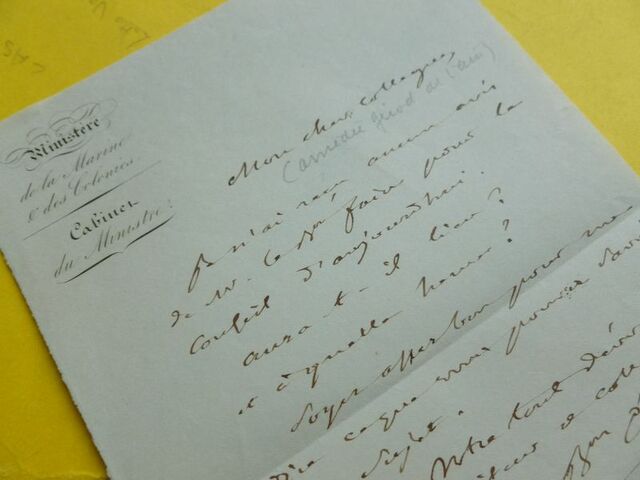 Ministère
de la Marine
& des Colonies
Cabinet
du Ministre
Mon cher Collègue,
(amédée girod de l'ain)
Je n'ai reçu aucun avis
de M. le faire pour le
Conseil d'aujourd'hui.
aura t-il lieu?
et à quelle heure?
Soyez assez bon pour me
dire ce que vous pouvez savoir
sujet.
Votre tout dévoué
et coll
Bon
LAS